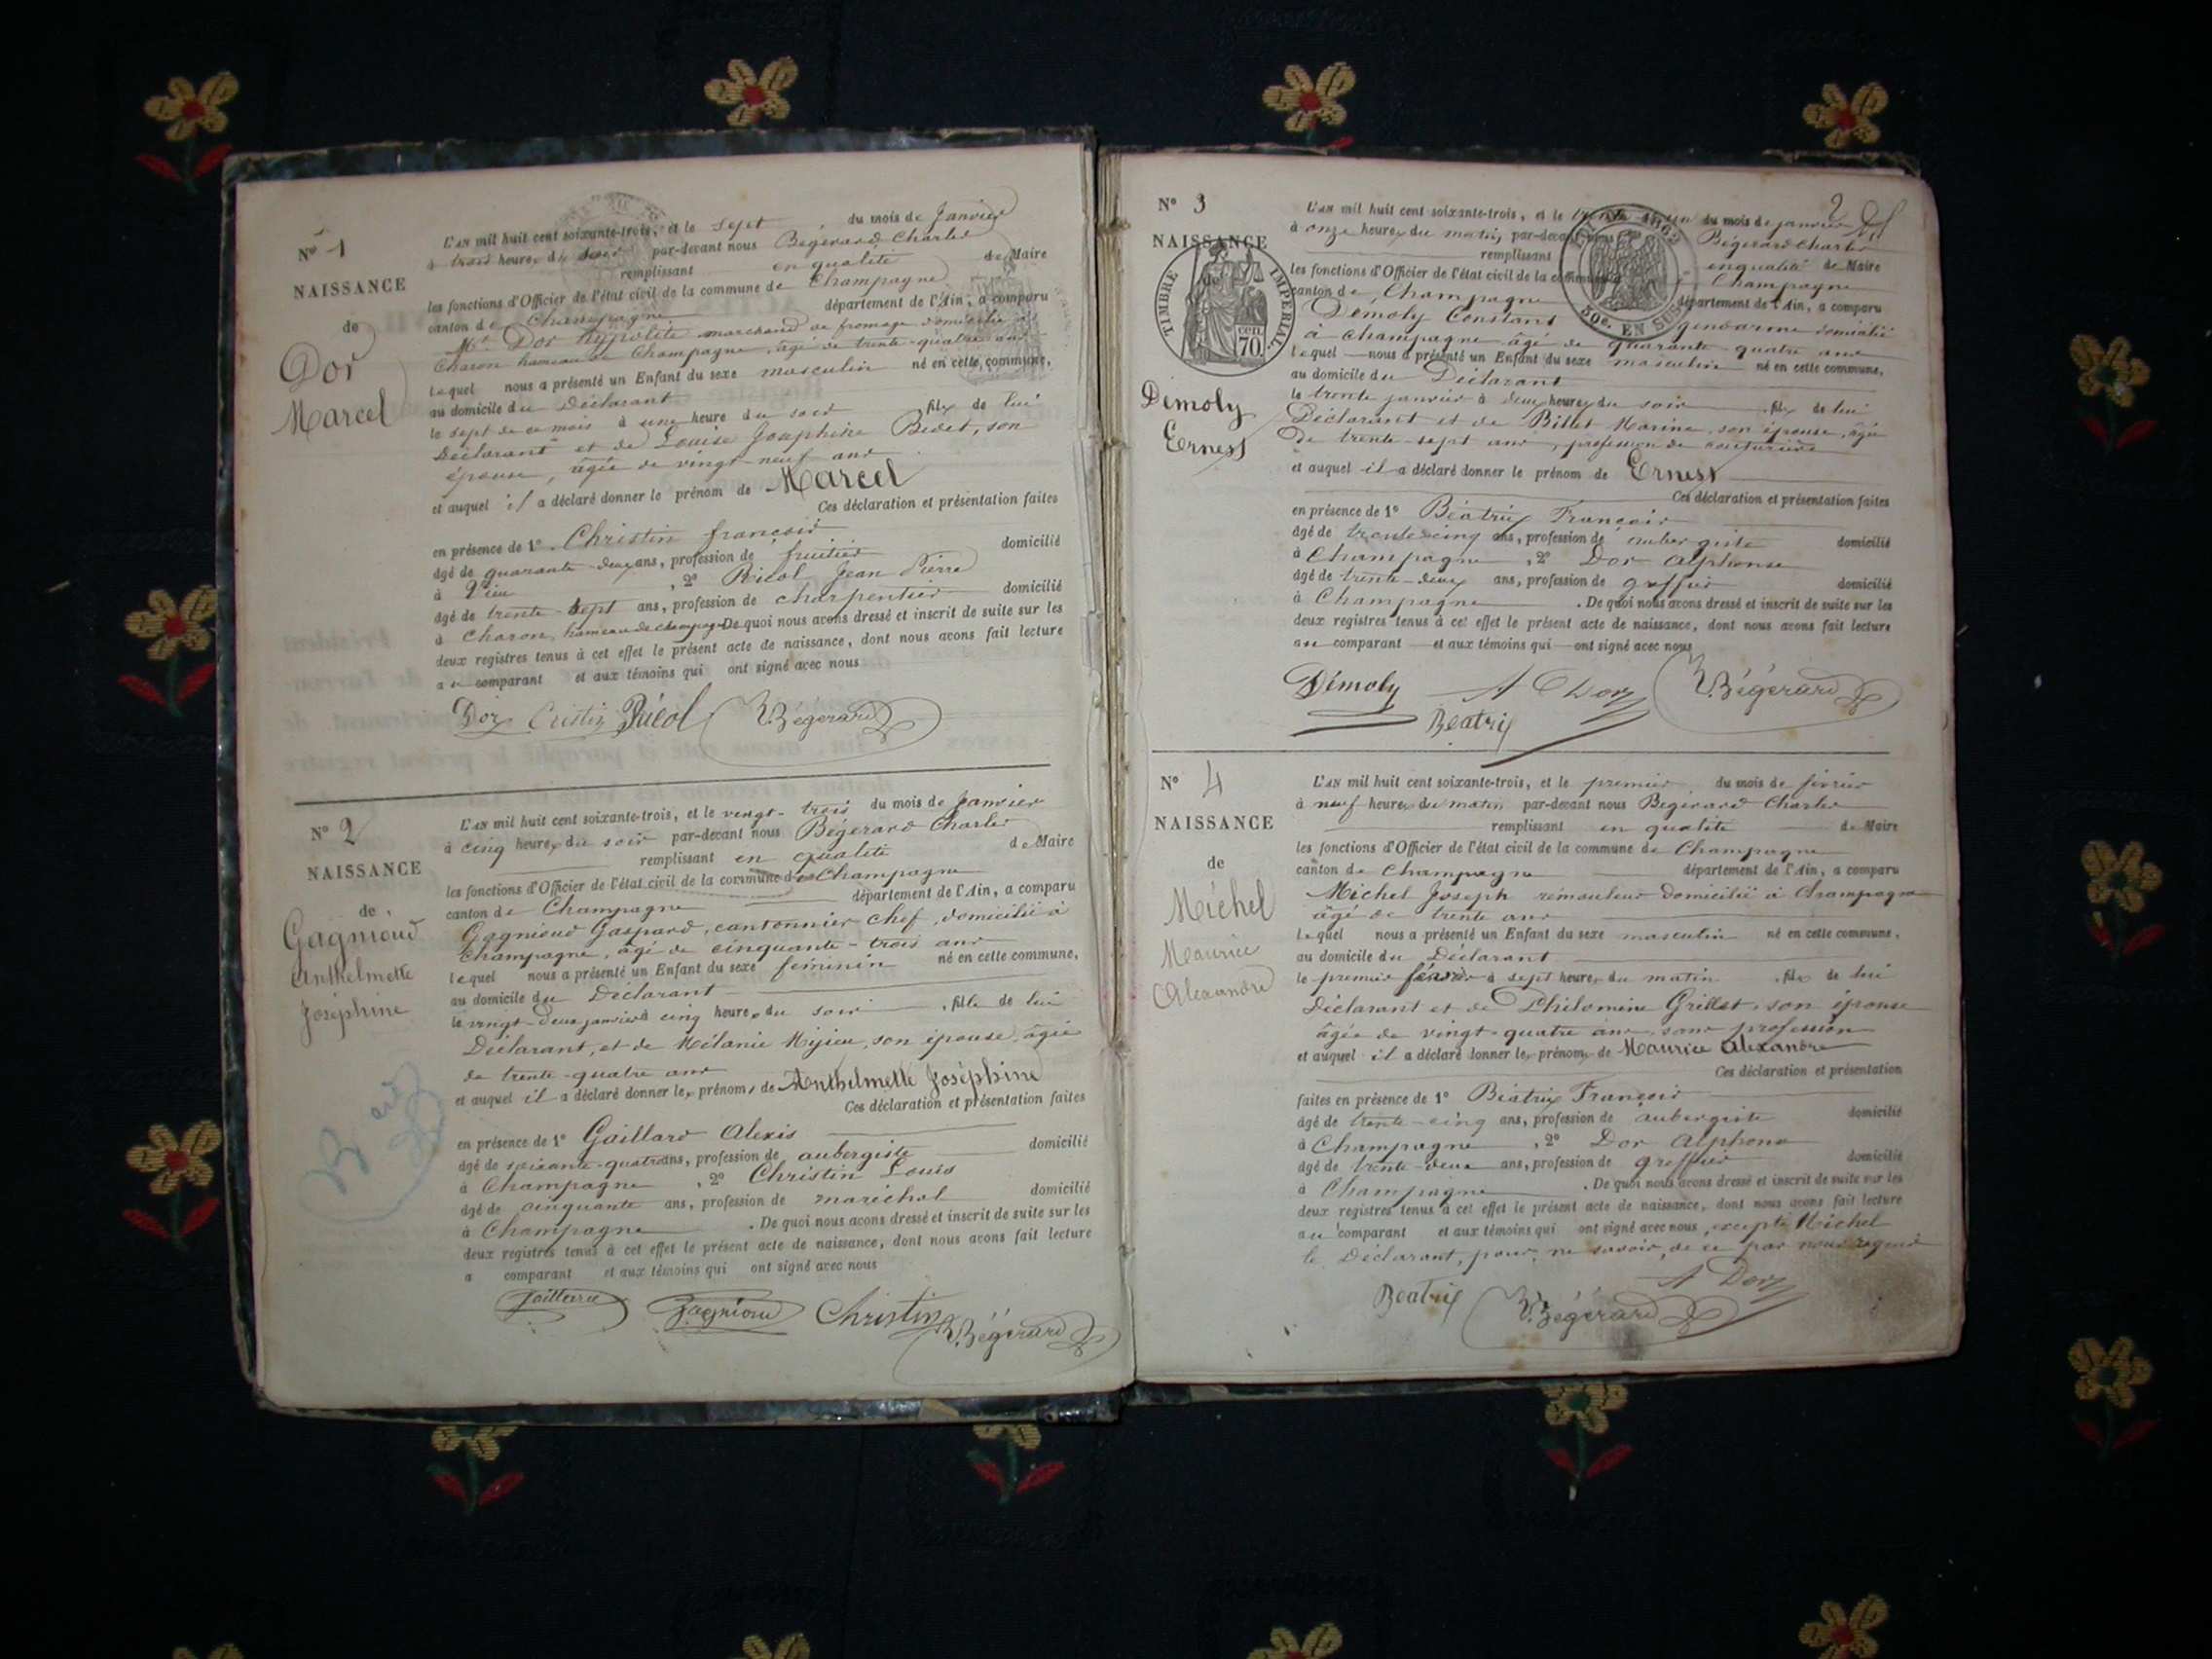 N° 1
NAISSANCE
de
Dor
Marcel
L'AN mil huit cent soixante-trois, et le sept du mois de Janvier
à trois heures du soir par-devant nous Bégérard Charles
remplissant en qualité de Maire
les fonctions d'Officier de l'état civil de la commune de Champagne
canton de Champagne département de l'Ain, a comparu
Mr Dor hypolite marchand de fromage domicilié à
Charon hameau de Champagne, âgé de trente-quatre ans
lequel nous a présenté un Enfant du sexe masculin né en cette commune,
au domicile du Déclarant
le sept de ce mois à une heure du soir, fils de lui
Déclarant et de Louise Josephine Bedet, son
épouse, âgée de vingt-neuf ans
et auquel il a déclaré donner le prénom de Marcel
Ces déclaration et présentation faites
en présence de 1° Christin françois
âgé de quarante-deux ans, profession de fruitier domicilié
à Vieu, 2° Picol Jean Pierre
âgé de trente-sept ans, profession de charpentier domicilié
à Charon, hameau de champagne De quoi nous avons dressé et inscrit de suite sur les
deux registres tenus à cet effet le présent acte de naissance, dont nous avons fait lecture
au comparant et aux témoins qui ont signé avec nous
Dor Cristin Picol Bégérard
N° 2
NAISSANCE
de
Gagnioud
Anthelmette
Joséphine
L'AN mil huit cent soixante-trois, et le vingt-trois du mois de Janvier
à cinq heures du soir par-devant nous Bégérard Charles
remplissant en qualité de Maire
les fonctions d'Officier de l'état civil de la commune de Champagne
canton de Champagne département de l'Ain, a comparu
Gagnioud Gaspard, cantonnier chef, domicilié à
Champagne, âgé de cinquante-trois ans
lequel nous a présenté un Enfant du sexe féminin né en cette commune,
au domicile du Déclarant
le vingt-deux janvier à cinq heures du soir, fille de lui
Déclarant, et de Mélanie Mijieu, son épouse, âgée
de trente-quatre ans
et auquel il a déclaré donner les prénoms de Anthelmette Joséphine
Ces déclaration et présentation faites
en présence de 1° Gaillard Alexis
âgé de soixante-quatre ans, profession de aubergiste domicilié
à Champagne, 2° Christin Louis
âgé de cinquante ans, profession de maréchal domicilié
à Champagne. De quoi nous avons dressé et inscrit de suite sur les
deux registres tenus à cet effet le présent acte de naissance, dont nous avons fait lecture
a comparant et aux témoins qui ont signé avec nous
Gaillard Gagnioud Christin Bégérard
2
N° 3
NAISSANCE
de
TIMBRE IMPERIAL
70 cen.
50c. EN SUS
Démoly
Ernest
L'AN mil huit cent soixante-trois, et le trente et un du mois de janvier
à onze heures du matin, par-devant nous Bégérard Charles
remplissant en qualité de Maire
les fonctions d'Officier de l'état civil de la commune de Champagne
canton de Champagne département de l'Ain, a comparu
Démoly Constant gendarme domicilié
à champagne âgé de quarante-quatre ans
lequel nous a présenté un Enfant du sexe masculin né en cette commune,
au domicile du Déclarant
le trente janvier à deux heures du soir, fils de lui
Déclarant et de Billet Marine, son épouse, âgée
de trente-sept ans, profession de couturière
et auquel il a déclaré donner le prénom de Ernest
Ces déclaration et présentation faites
en présence de 1° Béatrix François
âgé de trente-cinq ans, profession de aubergiste domicilié
à Champagne, 2° Dor Alphonse
âgé de trente-deux ans, profession de greffier domicilié
à Champagne. De quoi nous avons dressé et inscrit de suite sur les
deux registres tenus à cet effet le présent acte de naissance, dont nous avons fait lecture
au comparant et aux témoins qui ont signé avec nous
Démoly A Dor Bégérard
Beatrix
N° 4
NAISSANCE
de
Michel
Maurice
Alexandre
L'AN mil huit cent soixante-trois, et le premier du mois de février
à neuf heures du matin par-devant nous Bégérard Charles
remplissant en qualité de Maire
les fonctions d'Officier de l'état civil de la commune de Champagne
canton de Champagne département de l'Ain, a comparu
Michel Joseph rémouleur domicilié à Champagne
âgé de trente ans
lequel nous a présenté un Enfant du sexe masculin né en cette commune,
au domicile du Déclarant
le premier février à sept heures du matin, fils de lui
Déclarant et de Philomène Grillet, son épouse
âgée de vingt-quatre ans, sans profession
et auquel il a déclaré donner les prénoms de Maurice Alexandre
Ces déclaration et présentation
faites en présence de 1° Béatrix François
âgé de trente-cinq ans, profession de aubergiste domicilié
à Champagne, 2° Dor Alphonse
âgé de trente-deux ans, profession de greffier domicilié
à Champagne. De quoi nous avons dressé et inscrit de suite sur les
deux registres tenus à cet effet le présent acte de naissance, dont nous avons fait lecture
au comparant et aux témoins qui ont signé avec nous, excepté Michel
le Déclarant, pour ne savoir, de ce par nous requis
A Dor
Beatrix Bégérard